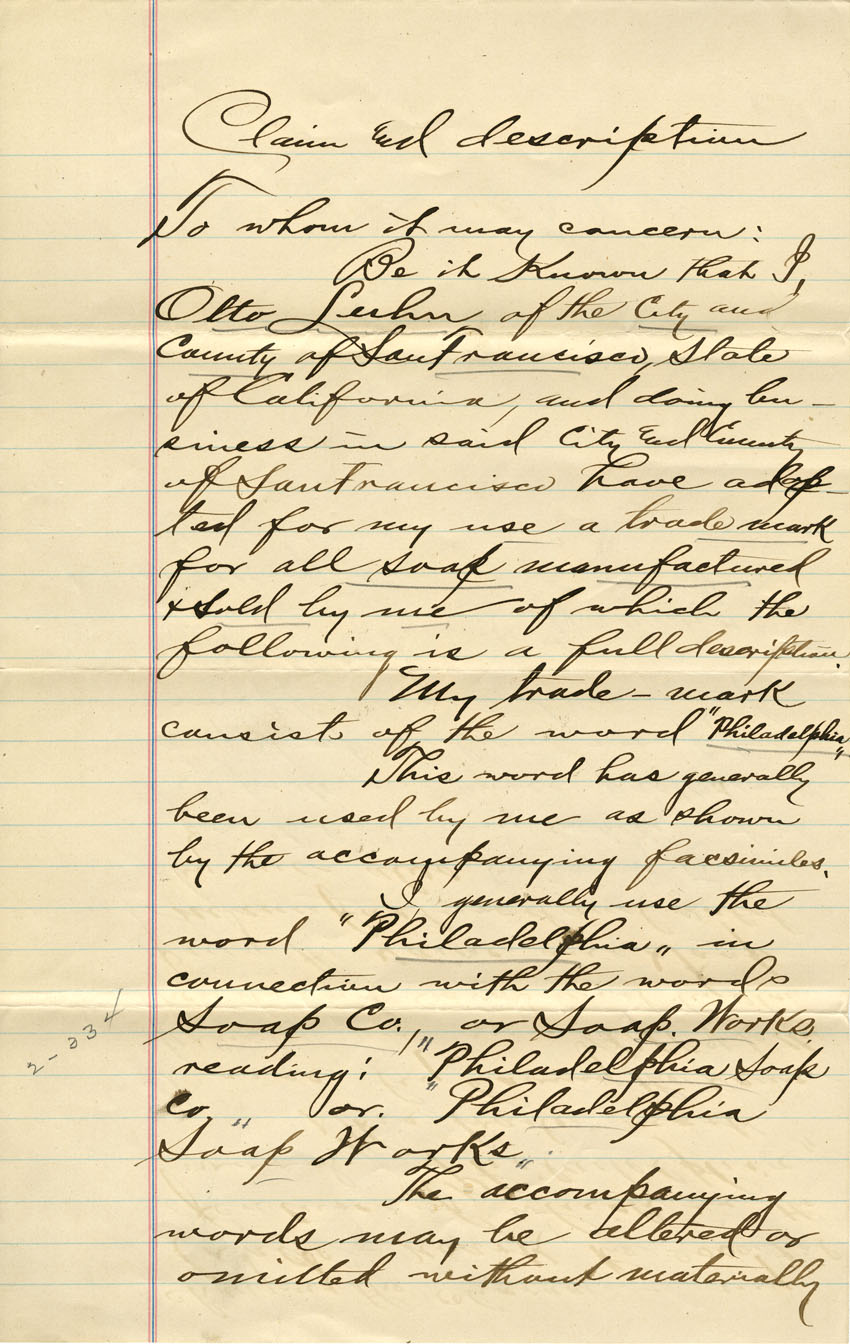 Claim and description
To whom it may concern:
Be it Known that I,
Otto Luhn of the City and
County of San Francisco, State
of California, and doing bu-
siness in said City and County
of San Francisco have adop-
ted for my use a trade mark
for all soap manufactured
& sold by me of which the
following is a full description.
My trade-mark
consist of the word "Philadelphia"
This word has generally
been used by me as shown
by the accompanying facsimiles.
I generally use the
word "Philadelphia" in
connection with the words
Soap Co., or Soap. Works,
reading: "Philadelphia Soap
Co" or. "Philadelphia
Soap Works"
The accompanying
words may be altered or
omitted without materially
2-334